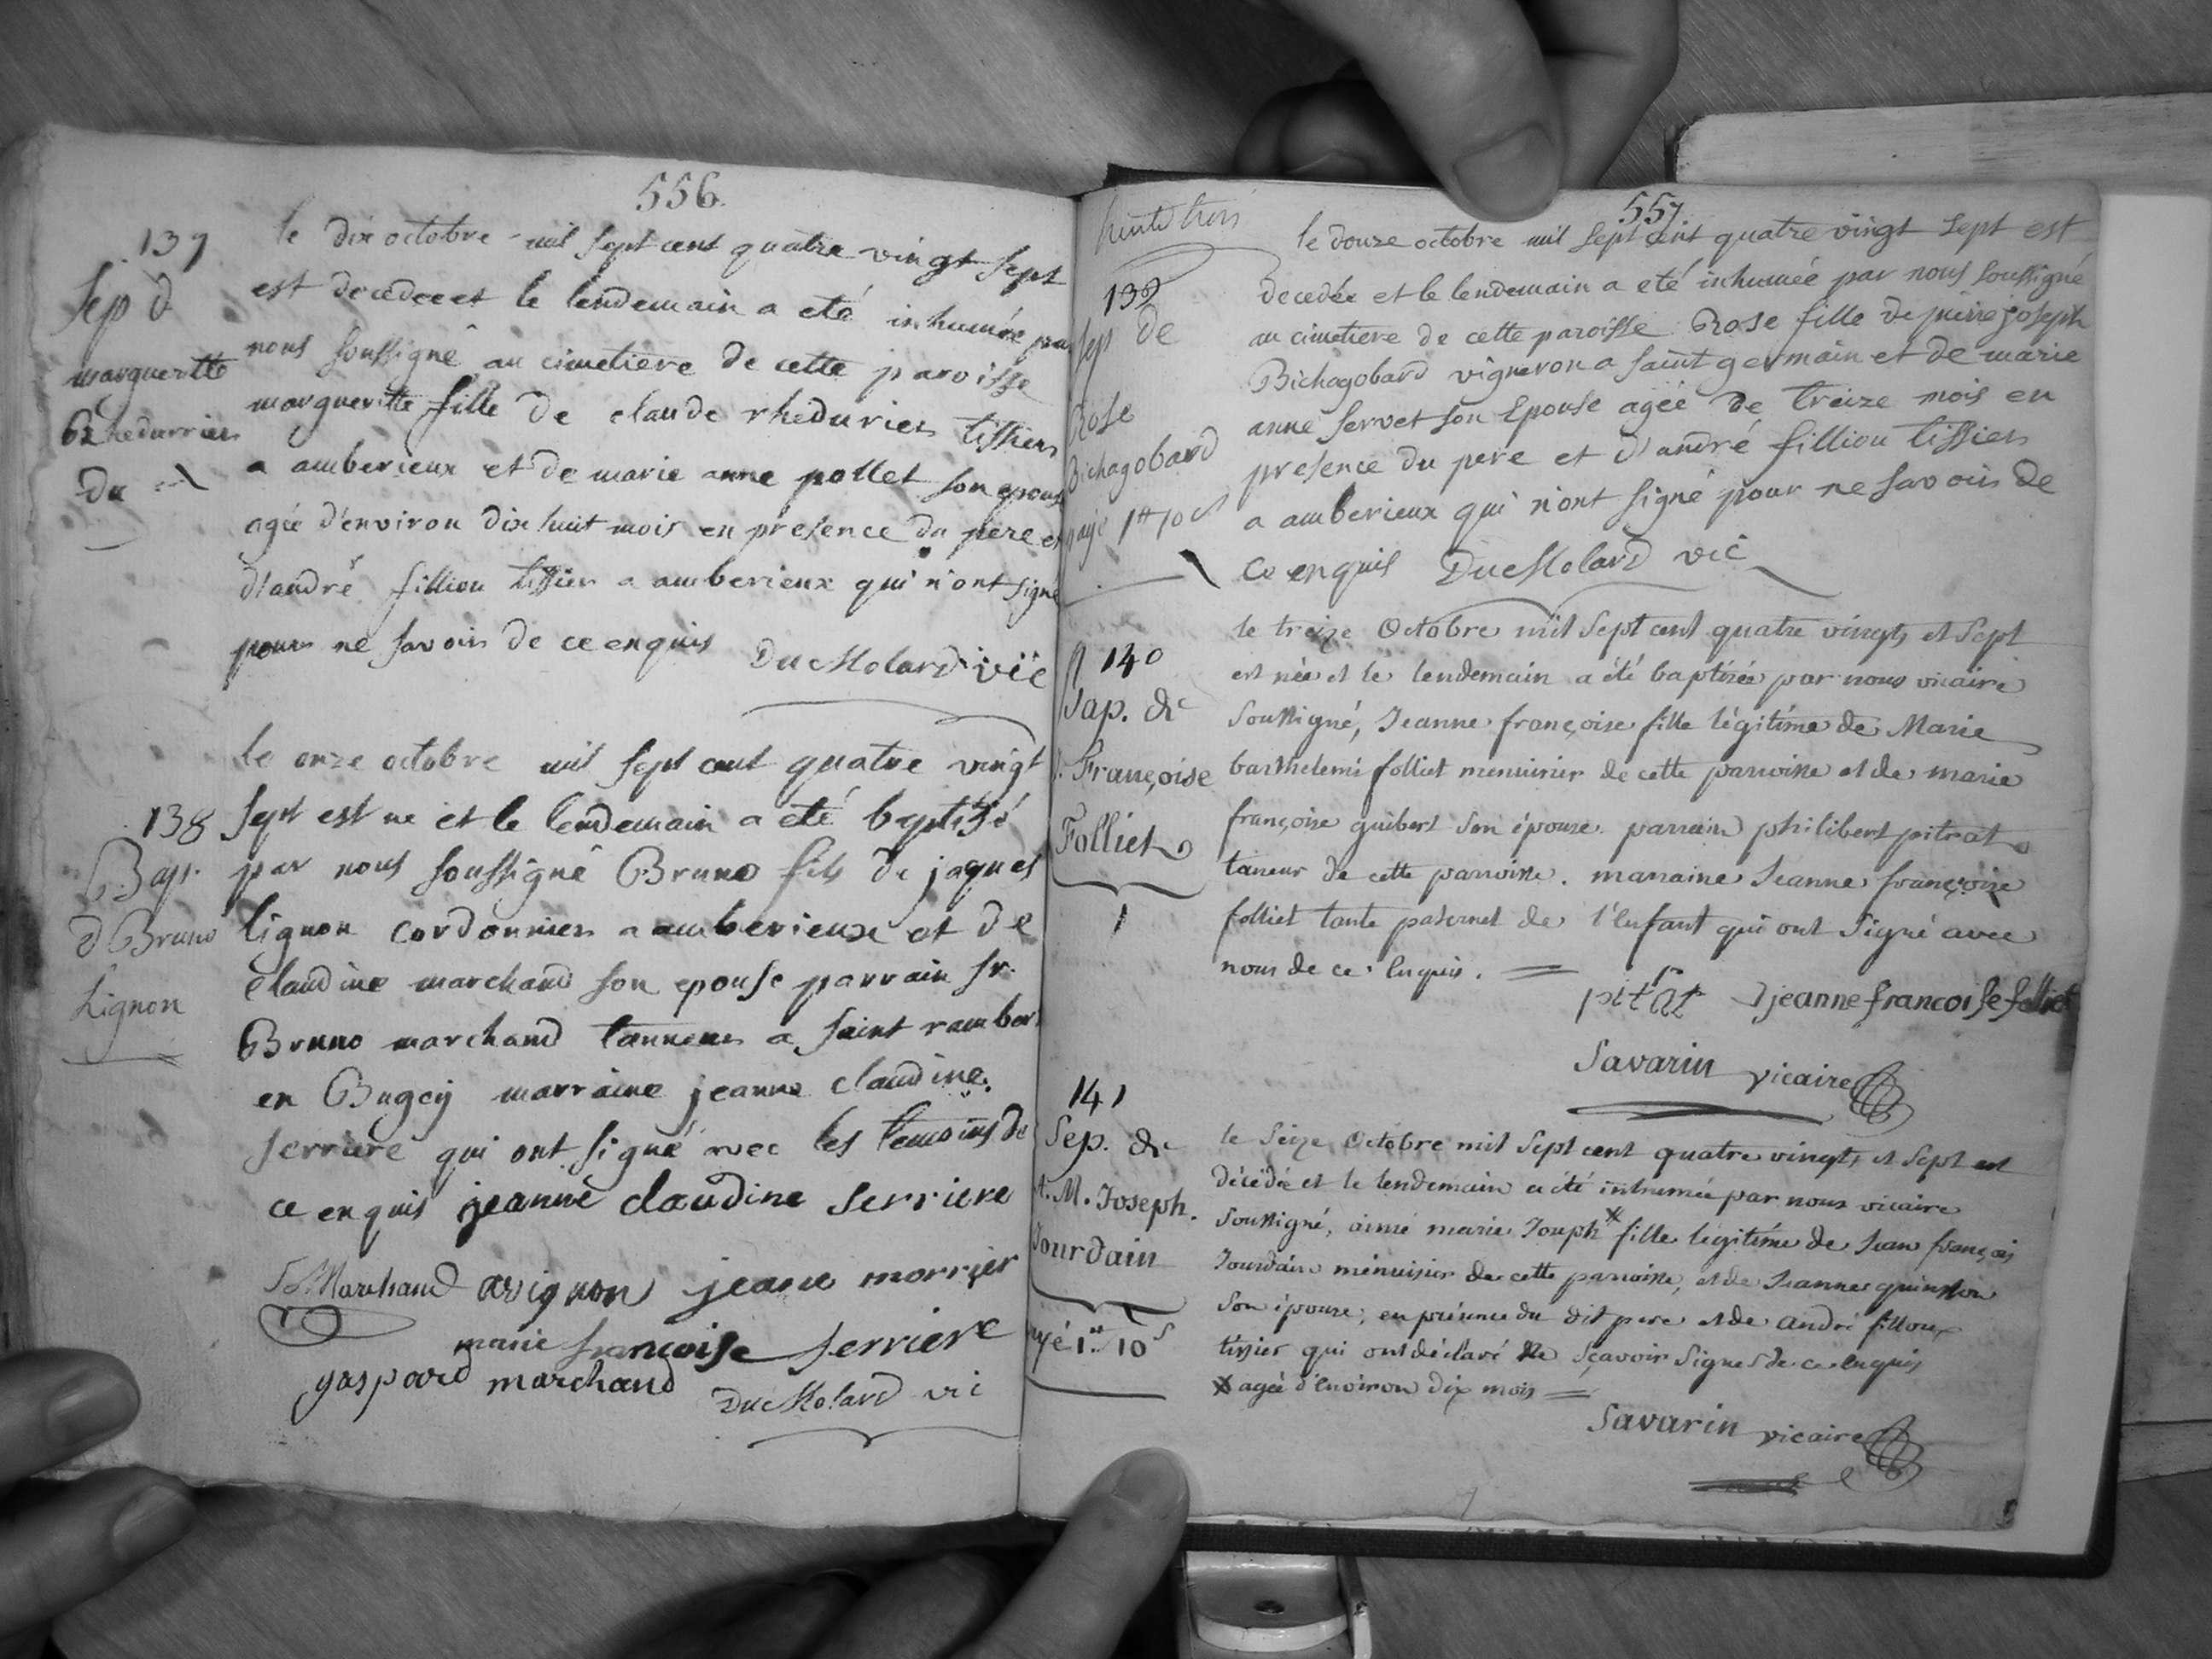 556
137
Sep d
margueritte
Rhedurrier
du
le dix octobre mil sept cent quatre vingt sept
est decedee et le lendemain a eté inhumée par
nous soussigné au cimetiere de cette paroisse
margueritte fille de claude rhedurier tissier
a amberieux et de marie anne pollet son epouse
agée d'environ dix huit mois en presence du pere et
d'andré fillion tissier a amberieux qui n'ont signé
pour ne savoir de ce enquis DucMolard vic
138
Bap.
d Bruno
Lignon
le onze octobre mil sept cent quatre vingt
sept est ne et le lendemain a eté baptisé
par nous soussigné Bruno fils de jaques
lignon cordonnier a amberieux et de
claudine marchand son epouse parrain sr.
Bruno marchand tanneur a saint rambert
en Bugey marraine jeanne claudine
serriere qui ont signé avec les temoins de
ce enquis jeanne claudine serriere
Marchand avignon jeane morrier
marie francoise serriere
gaspard marchand DucMolard vic
557
trente trois
139
sep de
Rose
Bichagobard
payé 1tt 10s
le douze octobre mil sept cent quatre vingt sept est
decedée et le lendemain a eté inhumée par nous soussigné
au cimetiere de cette paroisse Rose fille de pierre joseph
Bichagobard vigneron a saint germain et de marie
anne servet son Epouse agée de treize mois en
presence du pere et d'andré fillion tissier
a amberieux qui n'ont signé pour ne savoir de
ce enquis DucMolard vic
140
Bap. de
j. Françoise
Folliet
1
le treize Octobre mil sept cent quatre vingts et sept
est née et le lendemain a été baptisée par nous vicaire
soussigné, Jeanne françoise fille légitime de Marie
barthelemi folliet menuisier de cette parroisse et de marie
françoise guibert son épouse. parrain philibert pitrat
taneur de cette parroisse. marraine Jeanne françoise
folliet tante paternel de l'enfant qui ont signé avec
nous de ce enquis.
pitrat jeanne francoise folliet
Savarin vicaire
141
Sep. de
A. M. Joseph.
Jourdain
payé 1tt 10s
le seize Octobre mil sept cent quatre vingts et sept est
décédée et le lendemain a été inhumée par nous vicaire
soussigné, aimé marie Joseph x fille légitime de Jean françois
Jourdain menuisier de cette parroisse, et de Jeanne quinson
son épouse; en présence du dit pere et de andré filloux
tissier qui ont déclaré ne sçavoir signer de ce enquis
x agée d'environ dix mois
Savarin vicaire